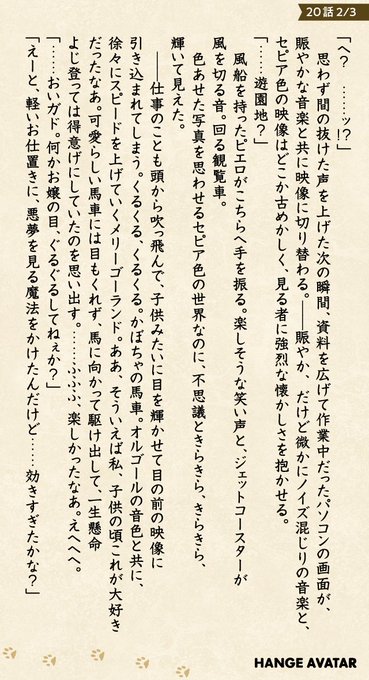 20話 2/3
「へ？　……ッ!?」
　思わず間の抜けた声を上げた次の瞬間、資料を広げて作業中だったパソコンの画面が、
賑やかな音楽と共に映像に切り替わる。――賑やか、だけど微かにノイズ混じりの音楽と、
セピア色の映像はどこか古めかしく、見る者に強烈な懐かしさを抱かせる。
「……遊園地？」
　風船を持ったピエロがこちらへ手を振る。楽しそうな笑い声と、ジェットコースターが
風を切る音。回る観覧車。
　色あせた写真を思わせるセピア色の世界なのに、不思議ときらきら、きらきら、
輝いて見えた。
　――仕事のことも頭から吹っ飛んで、子供みたいに目を輝かせて目の前の映像に
引き込まれてしまう。くるくる、くるくる。かぼちゃの馬車。オルゴールの音色と共に、
徐々にスピードを上げていくメリーゴーランド。ああ、そういえば私、子供の頃これが大好き
だったなあ。可愛らしい馬車には目もくれず、馬に向かって駆け出して、一生懸命
よじ登っては得意げにしていたのを思い出す。……ふふふ、楽しかったなあ。えへへへ。
「……おいガド。何かお嬢の目、ぐるぐるしてねぇか？」
「えーと、軽いお仕置きに、悪夢を見る魔法をかけたんだけど……効きすぎたかな？」
HANGE AVATAR